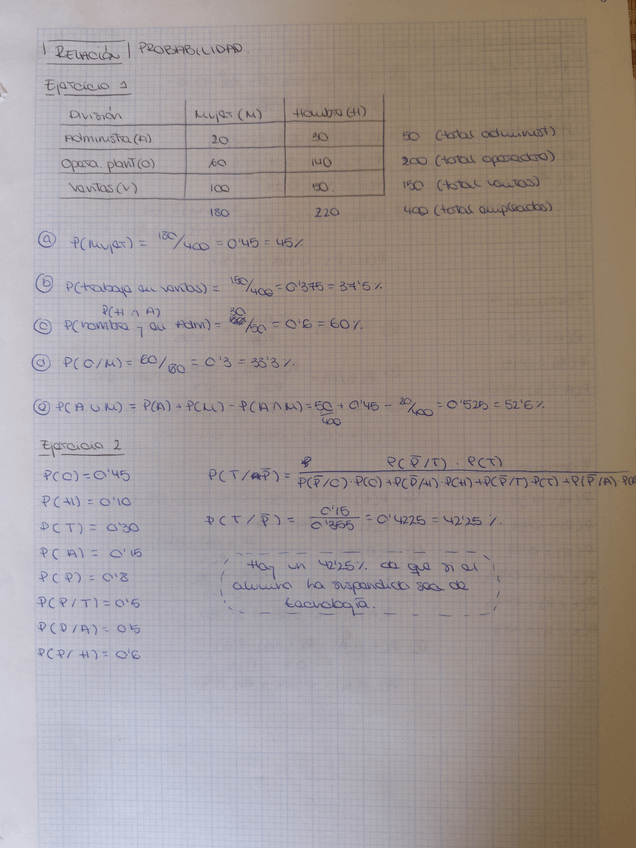 RELACIÓN PROBABILIDAD.
Ejercicio 1
División Mujer (M) Hombre (H)
Administra (A) 20 30 50 (total administ)
Opera. plant (O) 60 140 200 (total operadora)
Ventas (V) 100 50 150 (total ventas)
180 220 400 (total empleados)
a P(Mujer) = 180/400 = 0'45 = 45%
b P(trabaja en ventas) = 150/400 = 0'375 = 37'5%
P(H ∩ A)
c P(hombre y en Adm) = 30/50 = 0'6 = 60%.
d P(O/M) = 60/180 = 0'3 = 33'3%.
e P(A∪M) = P(A) + P(M) - P(A∩M) = 50/400 + 0'45 - 20/400 = 0'525 = 52'5%
Ejercicio 2
P(O) = 0'45
P(H) = 0'10
P(T) = 0'30
P(A) = 0'15
P(P) = 0'8
P(P/T) = 0'5
P(P/A) = 0'5
P(P/H) = 0'6
P(T/P̄) = P(P̄/T) · P(T)
P(P̄/O)·P(O)+P(P̄/H)·P(H)+P(P̄/T)·P(T)+P(P̄/A)·P(
P(T/P̄) = 0'15/0'355 = 0'4225 = 42'25%.
Hay un 42'25% de que si el
alumno ha suspendido sea de
tecnología.